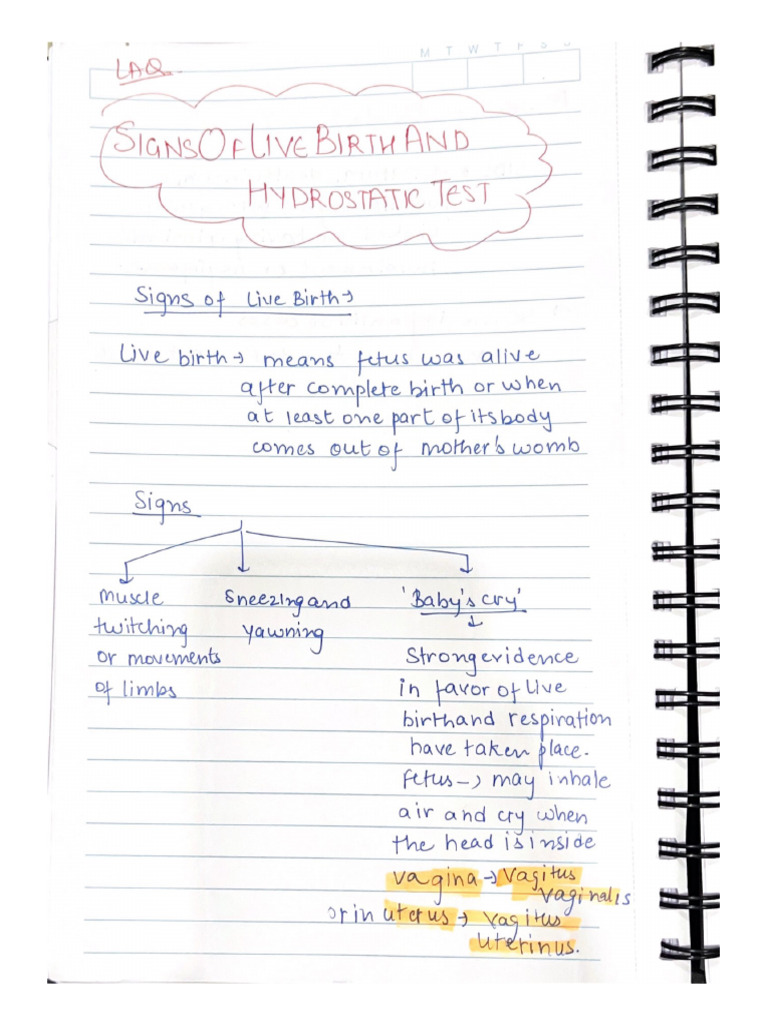 M T W T F S S
LAQ
SIGNS OF LIVE BIRTH AND
HYDROSTATIC TEST
Signs of Live Birth →
Live birth → means fetus was alive
after complete birth or when
at least one part of its body
comes out of mother's womb
Signs
Muscle
twitching
or movements
of limbs
Sneezing and
yawning
'Baby's cry'
Strong evidence
in favor of live
birth and respiration
have taken place.
fetus → may inhale
air and cry when
the head is inside
vagina → Vagitus
vaginalis
or in uterus → Vagitus
uterinus.